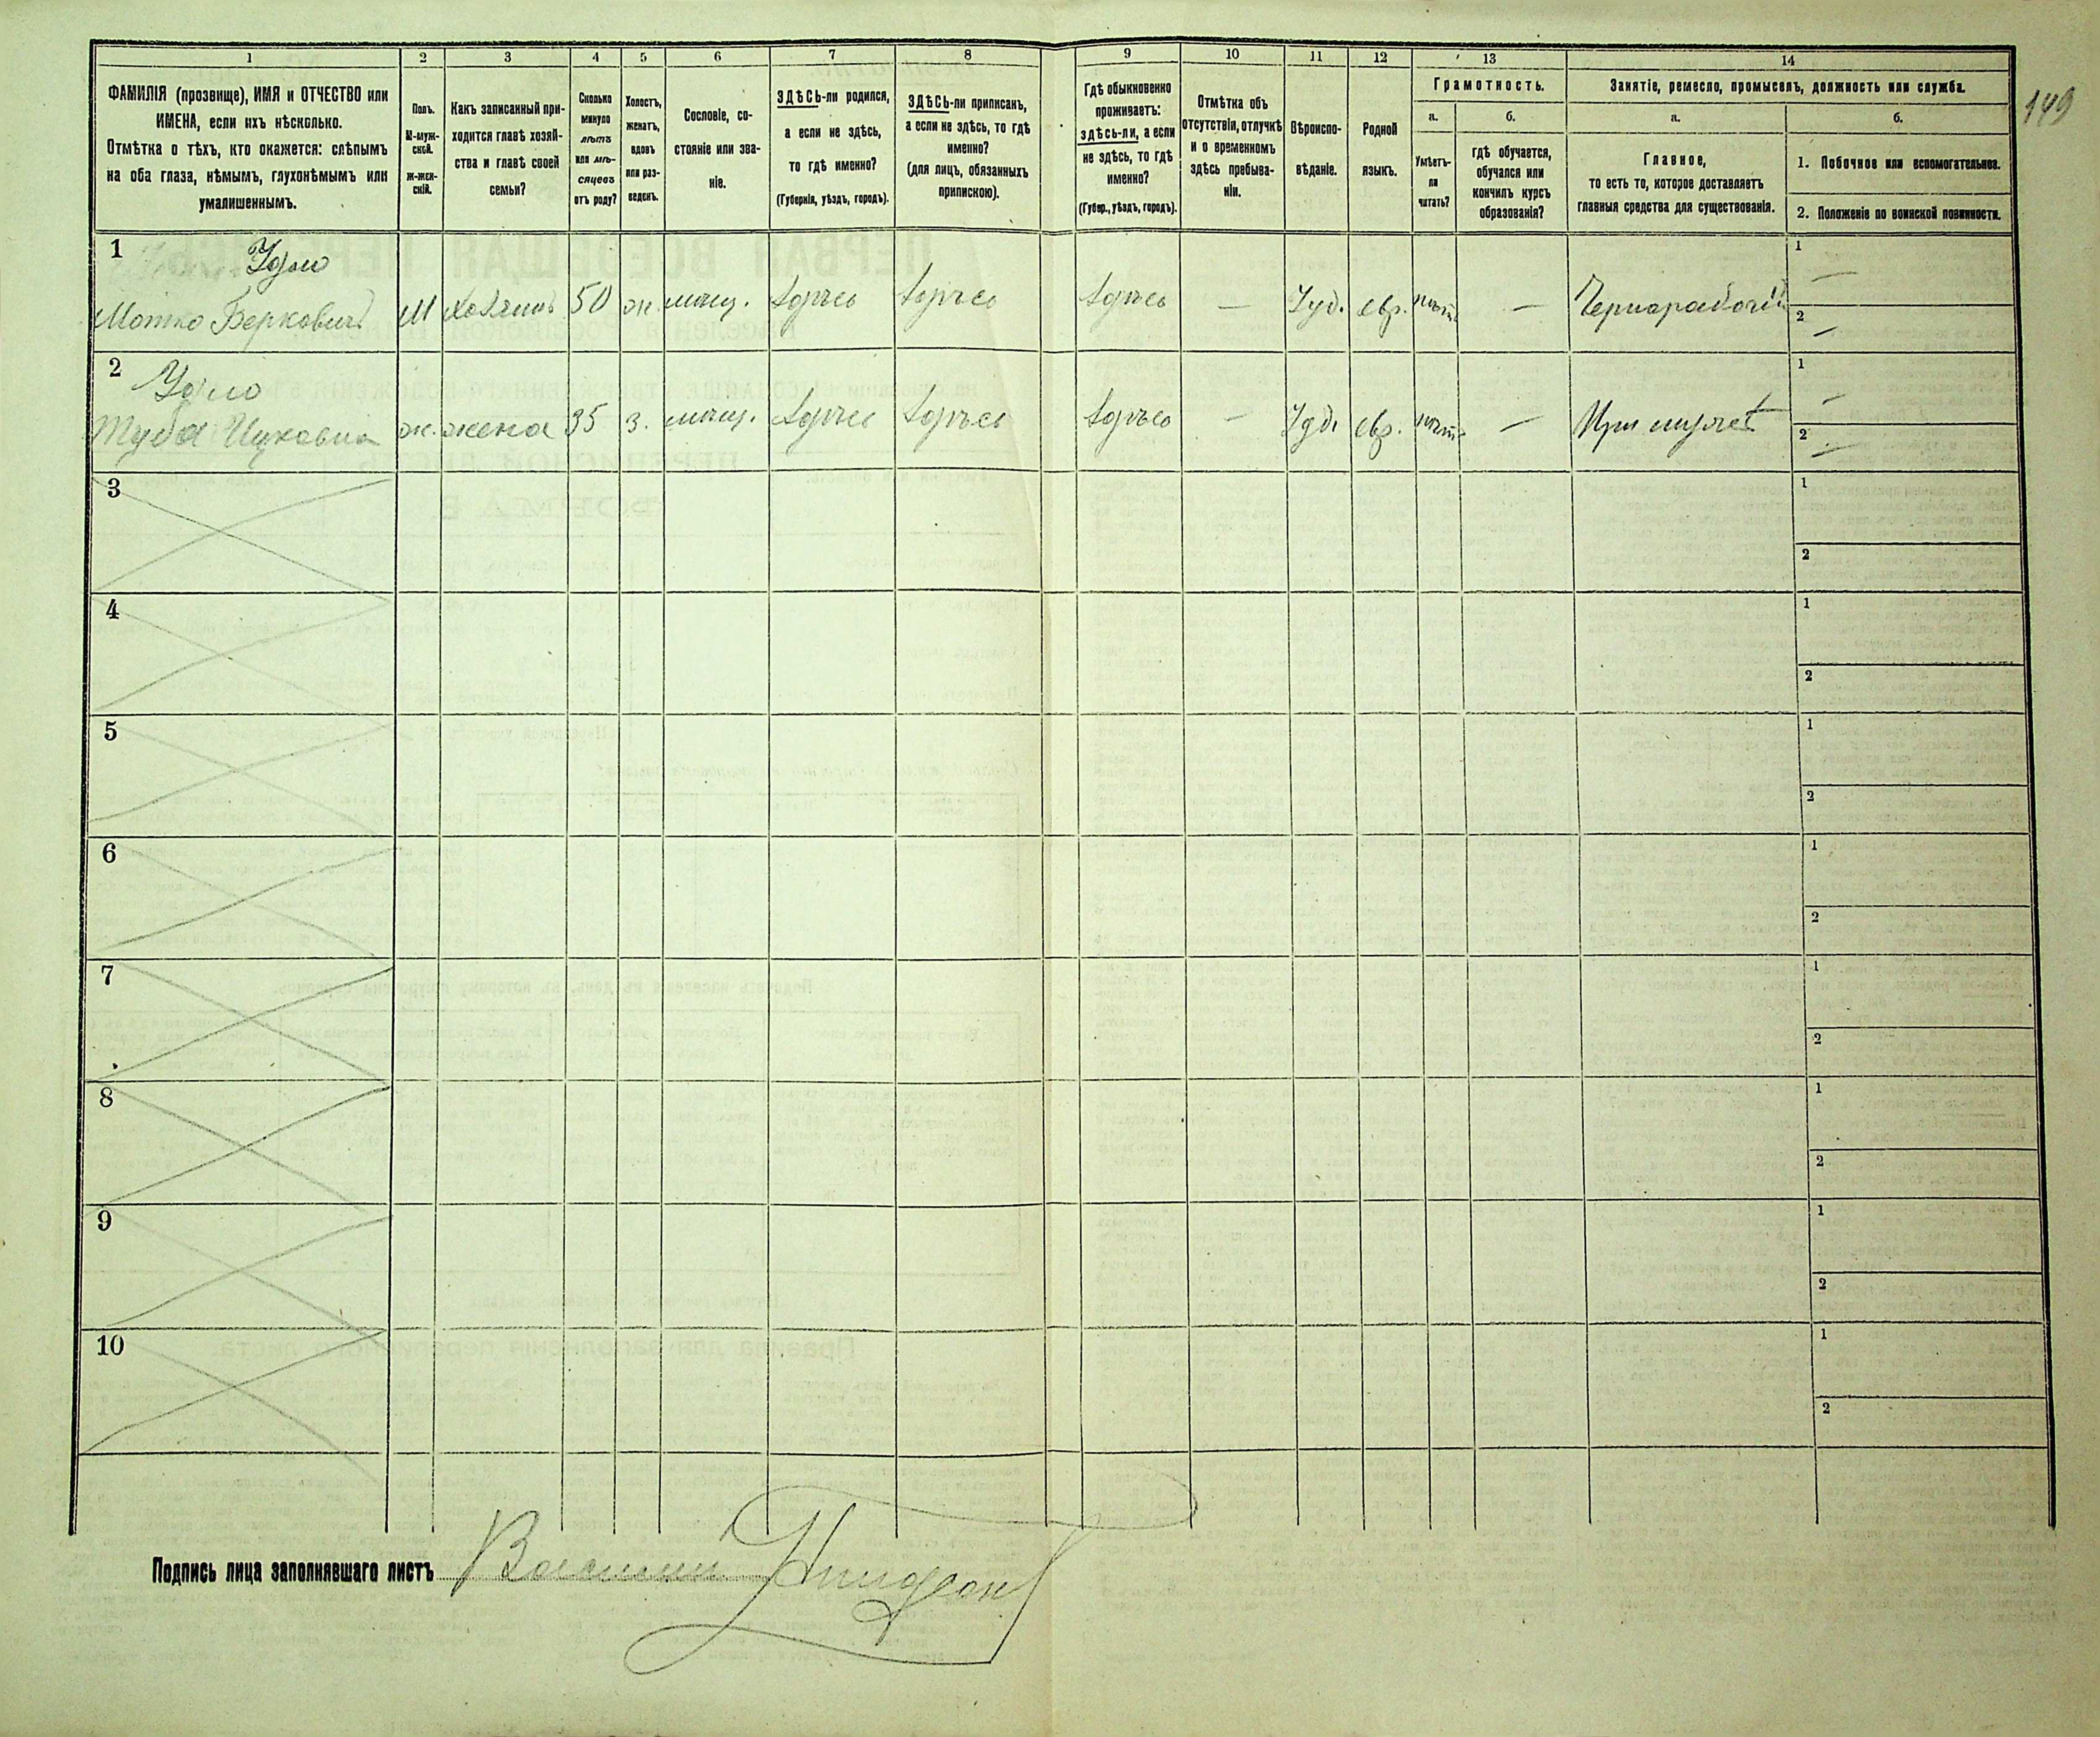 1 2 3 4 5 6 7 8 9 10 11 12 13 14
ФАМИЛІЯ (прозвище), ИМЯ и ОТЧЕСТВО или
ИМЕНА, если ихъ нѣсколько.
Отмѣтка о тѣхъ, кто окажется: слѣпымъ
на оба глаза, нѣмымъ, глухонѣмымъ или
умалишеннымъ.
Полъ.
М-муж-
ской.
ж-жен-
скій.
Какъ записанный при-
ходится главѣ хозяй-
ства и главѣ своей
семьи?
Сколько
минуло
лѣтъ
или мѣ-
сяцевъ
отъ роду?
Холостъ,
женатъ,
вдовъ
или раз-
веденъ.
Сословіе, со-
стояніе или зва-
ніе.
ЗДѢСЬ-ли родился,
а если не здѣсь,
то гдѣ именно?
(Губернія, уѣздъ, городъ).
ЗДѢСЬ-ли приписанъ,
а если не здѣсь, то гдѣ
именно?
(для лицъ, обязанныхъ
припискою).
Гдѣ обыкновенно
проживаетъ:
здѣсь-ли, а если
не здѣсь, то гдѣ
именно?
(Губер., уѣздъ, городъ).
Отмѣтка объ
отсутствіи, отлучкѣ
и о временномъ
здѣсь пребыва-
ніи.
Вѣроиспо-
вѣданіе.
Родной
языкъ.
Грамотность.
а.
Умѣетъ-
ли
читать?
б.
гдѣ обучается,
обучался или
кончилъ курсъ
образованія?
Занятіе, ремесло, промыселъ, должность или служба.
а.
Главное,
то есть то, которое доставляетъ
главныя средства для существованія.
б.
1. Побочное или вспомогательное.
2. Положеніе по воинской повинности.
149
1
Мотко Берковичъ М хозяинъ 50 ж. мѣщ. здѣсь здѣсь здѣсь — Іуд. евр. нѣтъ — Чернорабочій
1 —
2 —
2
Туба Ицковна ж. жена 35 з. мѣщ. здѣсь здѣсь здѣсь — Іуд. евр. нѣтъ — При мужѣ
1 —
2 —
3
1
2
4
1
2
5
1
2
6
1
2
7
1
2
8
1
2
9
1
2
10
1
2
Подпись лица заполнявшаго листъ